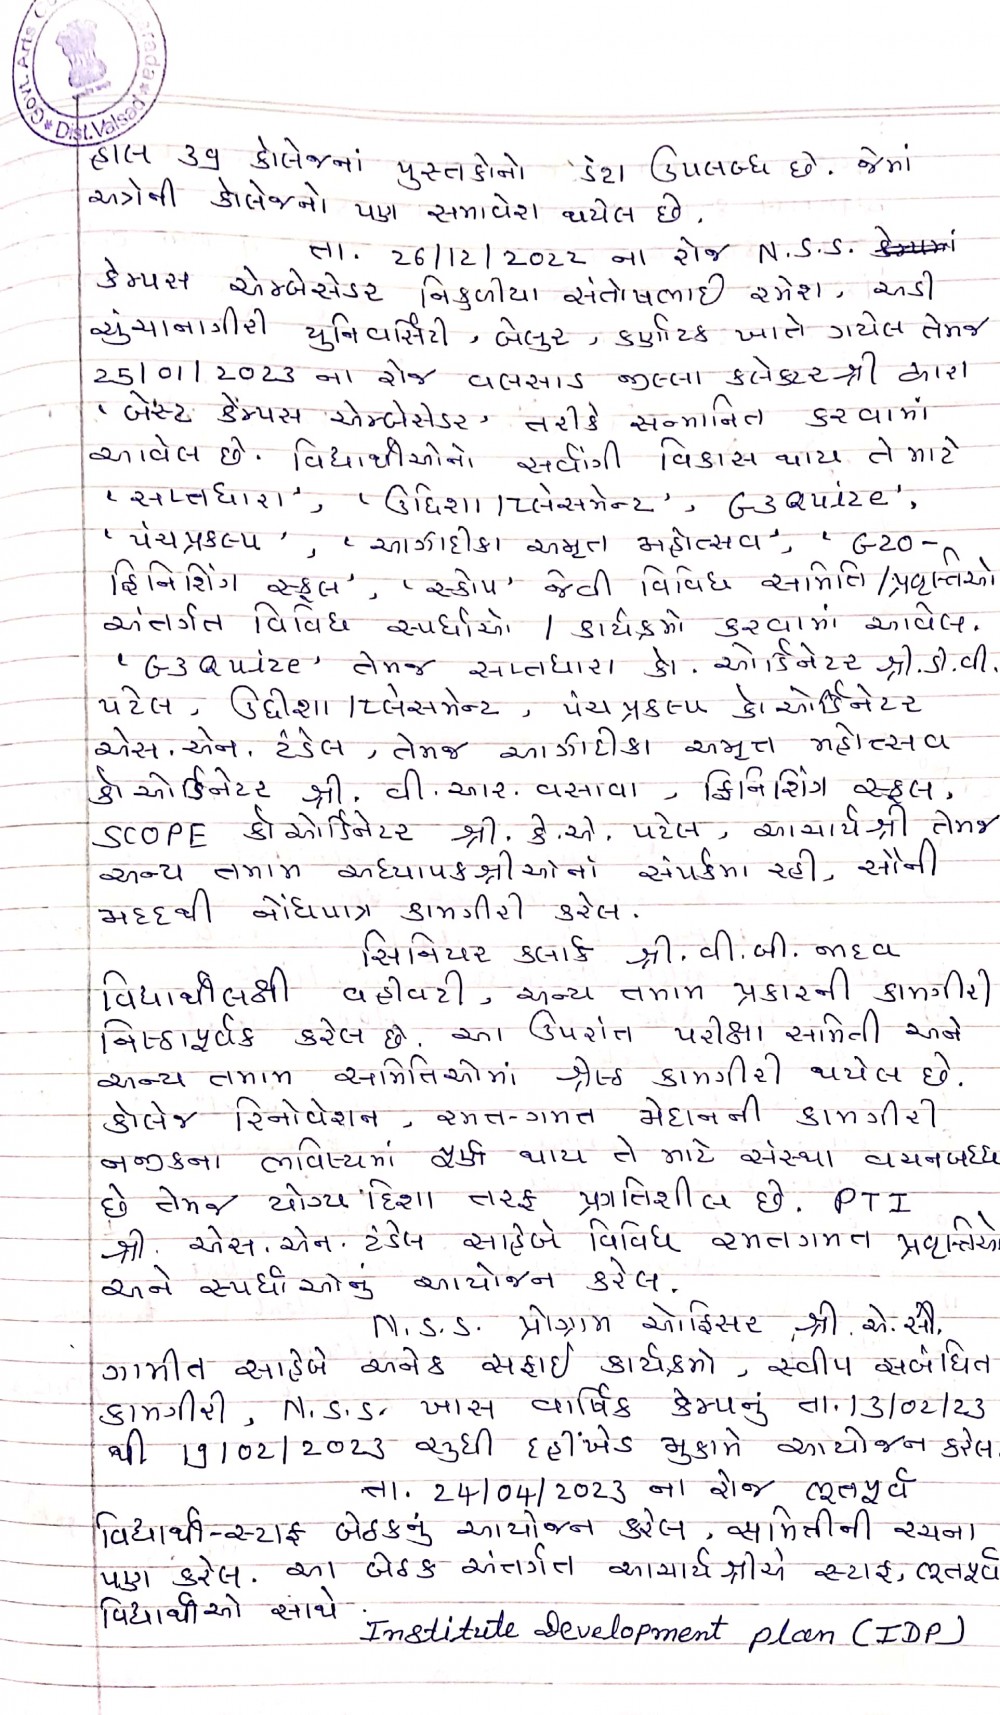 Govt. Arts
Dist. Valsad
હાલ ૩૭ કોલેજનાં પુસ્તકોનો ડેટા ઉપલબ્ધ છે. જેમાં
અત્રેની કોલેજનો પણ સમાવેશ થયેલ છે.
તા. 26/12/2022 ના રોજ N.S.S.
કેમ્પસ એમ્બેસેડર નિકુળીયા સંતોષભાઈ રમેશ, અડી
ચુંચાનાગીરી યુનિવર્સિટી, બેલુર, કર્ણાટક ખાતે ગયેલ તેમજ
25/01/2023 ના રોજ વલસાડ જીલ્લા કલેક્ટરશ્રી દ્વારા
'બેસ્ટ કેમ્પસ એમ્બેસેડર' તરીકે સન્માનિત કરવામાં
આવેલ છે. વિદ્યાર્થીઓનો સર્વાંગી વિકાસ થાય તે માટે
'સપ્તધારા', 'ઉદિશા/પ્લેસમેન્ટ', G3Quize',
'પંચપ્રકલ્પ', 'આઝાદીકા અમૃત મહોત્સવ', 'G20-
ફિનિશિંગ સ્કૂલ', 'સ્કોપ' જેવી વિવિધ સમિતિ/પ્રવૃત્તિઓ
અંતર્ગત વિવિધ સ્પર્ધાઓ / કાર્યક્રમો કરવામાં આવેલ.
'G3Quize' તેમજ સપ્તધારા કો. ઓર્ડિનેટર શ્રી.ડી.વી.
પટેલ, ઉદ્દીશા/પ્લેસમેન્ટ, પંચપ્રકલ્પ કોઓર્ડિનેટર
એસ.એન. ટંડેલ, તેમજ આઝાદીકા અમૃત મહોત્સવ
કોઓર્ડિનેટર શ્રી. વી.આર. વસાવા, ફિનિશિંગ સ્કૂલ,
SCOPE કોઓર્ડિનેટર શ્રી. કે.એ. પટેલ, આચાર્યશ્રી તેમજ
અન્ય તમામ અધ્યાપકશ્રીઓનાં સંપર્કમા રહી, સૌની
મદદથી નોંધપાત્ર કામગીરી કરેલ.
સિનિયર કલાર્ક શ્રી. વી.બી. જાદવ
વિદ્યાર્થીલક્ષી વહીવટી, અન્ય તમામ પ્રકારની કામગીરી
નિષ્ઠાપૂર્વક કરેલ છે. આ ઉપરાંત પરીક્ષા સમિતી અને
અન્ય તમામ સમિતિઓમાં શ્રેષ્ઠ કામગીરી થયેલ છે.
કોલેજ રિનોવેશન, રમત-ગમત મેદાનની કામગીરી
નજીકના ભવિષ્યમાં પૂર્ણ થાય તે માટે સંસ્થા વચનબધ્ધ
છે તેમજ યોગ્ય દિશા તરફ પ્રગતિશીલ છે. PTI
શ્રી. એસ.એન. ટંડેલ સાહેબે વિવિધ રમતગમત પ્રવૃત્તિઓ
અને સ્પર્ધાઓનું આયોજન કરેલ.
N.S.S. પ્રોગ્રામ ઓફિસર શ્રી. એ.સી.
ગામીત સાહેબે અનેક સફાઈ કાર્યક્રમો, સ્વીપ સબંધિત
કામગીરી, N.S.S. ખાસ વાર્ષિક કેમ્પનું તા.13/02/23
થી 19/02/2023 સુધી દહીંખેડ મુકામે આયોજન કરેલ.
તા. 24/04/2023 ના રોજ ભૂતપૂર્વ
વિદ્યાર્થી-સ્ટાફ બેઠકનું આયોજન કરેલ, સમિતીની રચના
પણ કરેલ. આ બેઠક અંતર્ગત આચાર્યશ્રીએ સ્ટાફ, ભૂતપૂર્વ
વિદ્યાર્થીઓ સાથે
Institute Development plan (IDP)